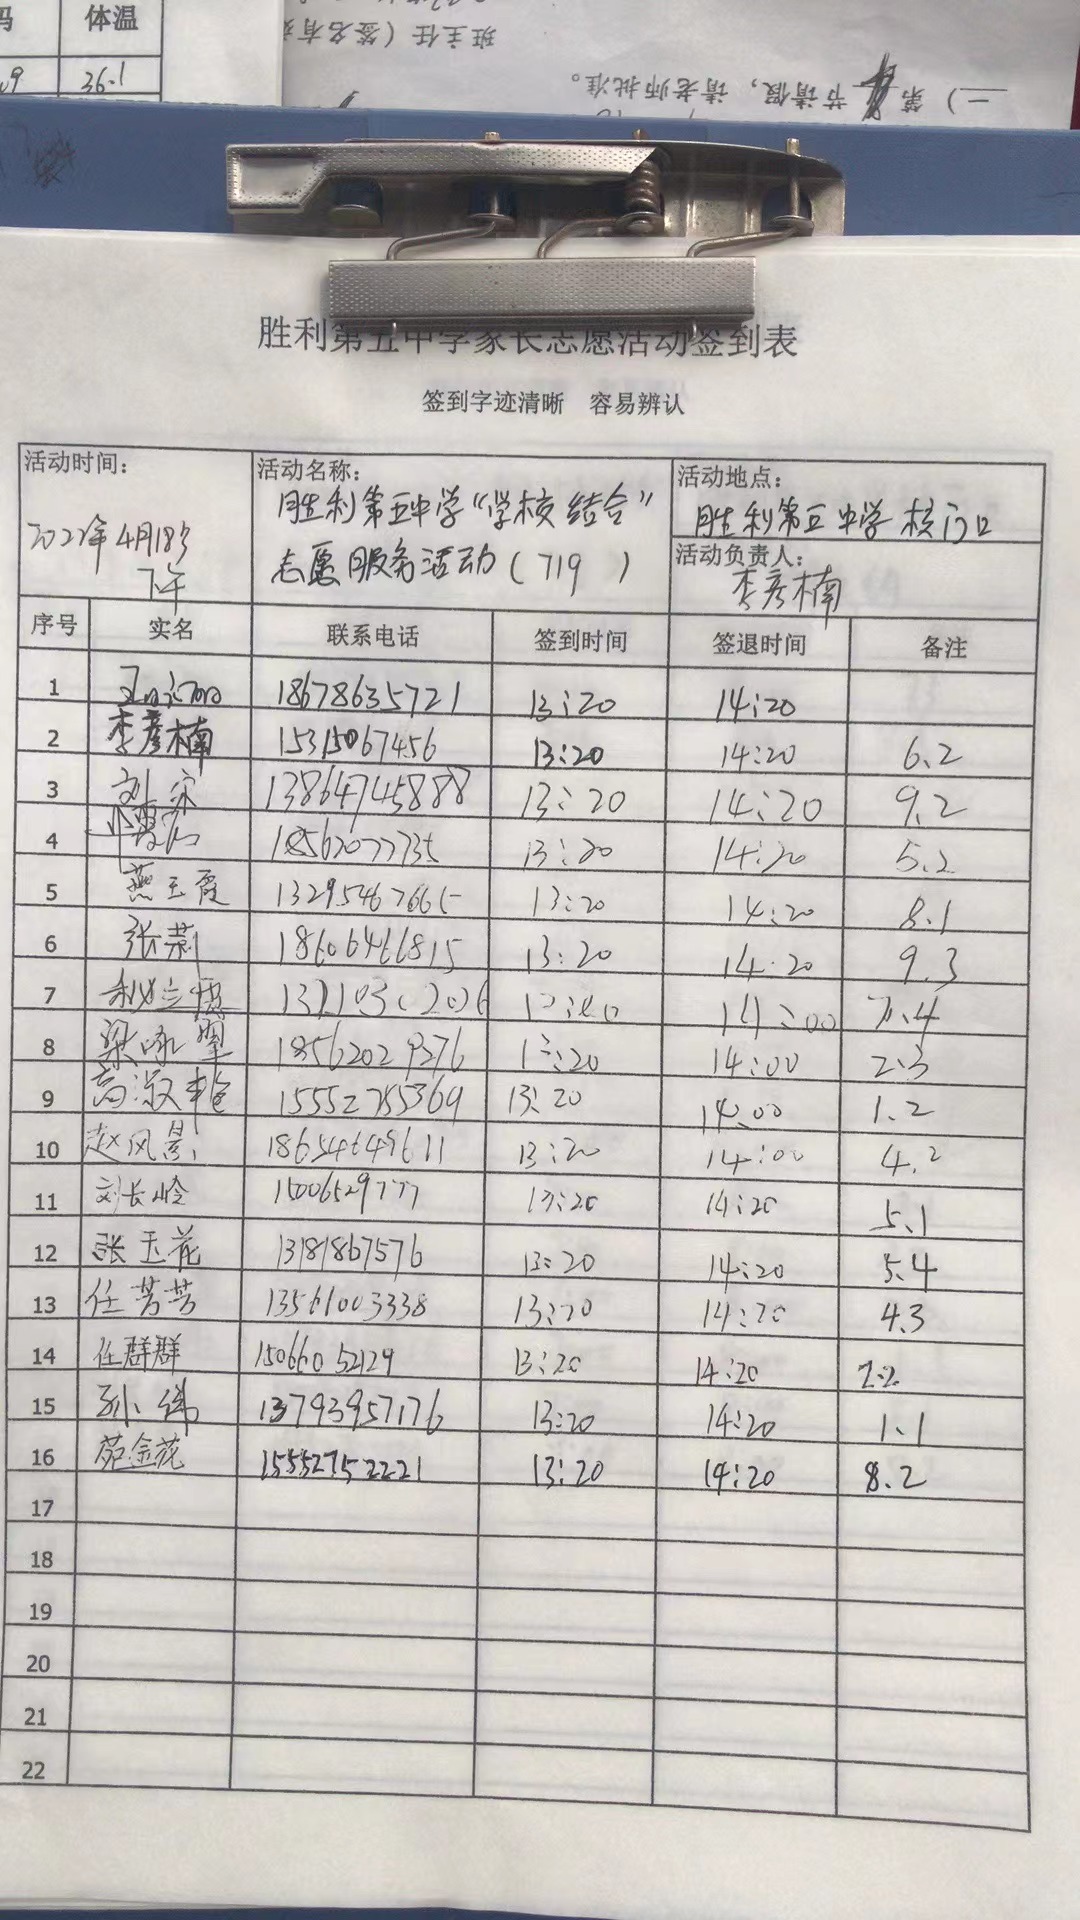 体温
36.1
班主任（签名有
一）第 节请假，请老师批准。
胜利第五中学家长志愿活动签到表
签到字迹清晰 容易辨认
活动时间：
2022年4月18日
下午
活动名称：
胜利第五中学“学校结合”
志愿服务活动（719 ）
活动地点：
胜利第五中学校门口
活动负责人：
李彦楠
序号 实名 联系电话 签到时间 签退时间 备注
1 18678635721 13:20 14:20
2 李彦楠 15315067456 13:20 14:20 6.2
3 刘 13864745888 13:20 14:20 9.2
4 18562077735 13:20 14:20 5.2
5 燕玉霞 13295467665 13:20 14:20 8.1
6 张莉 18606466815 13:20 14:20 9.3
7 14:00 7.4
8 梁咏 18562029276 13:20 14:00 2.3
9 高淑艳 15552755369 13:20 14:00 1.2
10 赵风景 18654649611 13:20 14:00 4.2
11 刘长岭 15006529777 13:20 14:20 5.1
12 张玉花 13181867576 13:20 14:20 5.4
13 任芳芳 13561003338 13:20 14:20 4.3
14 任群群 15066052129 13:20 14:20 2.2
15 孙伟 13793957176 13:20 14:20 1.1
16 苑金花 15552752221 13:20 14:20 8.2
17
18
19
20
21
22